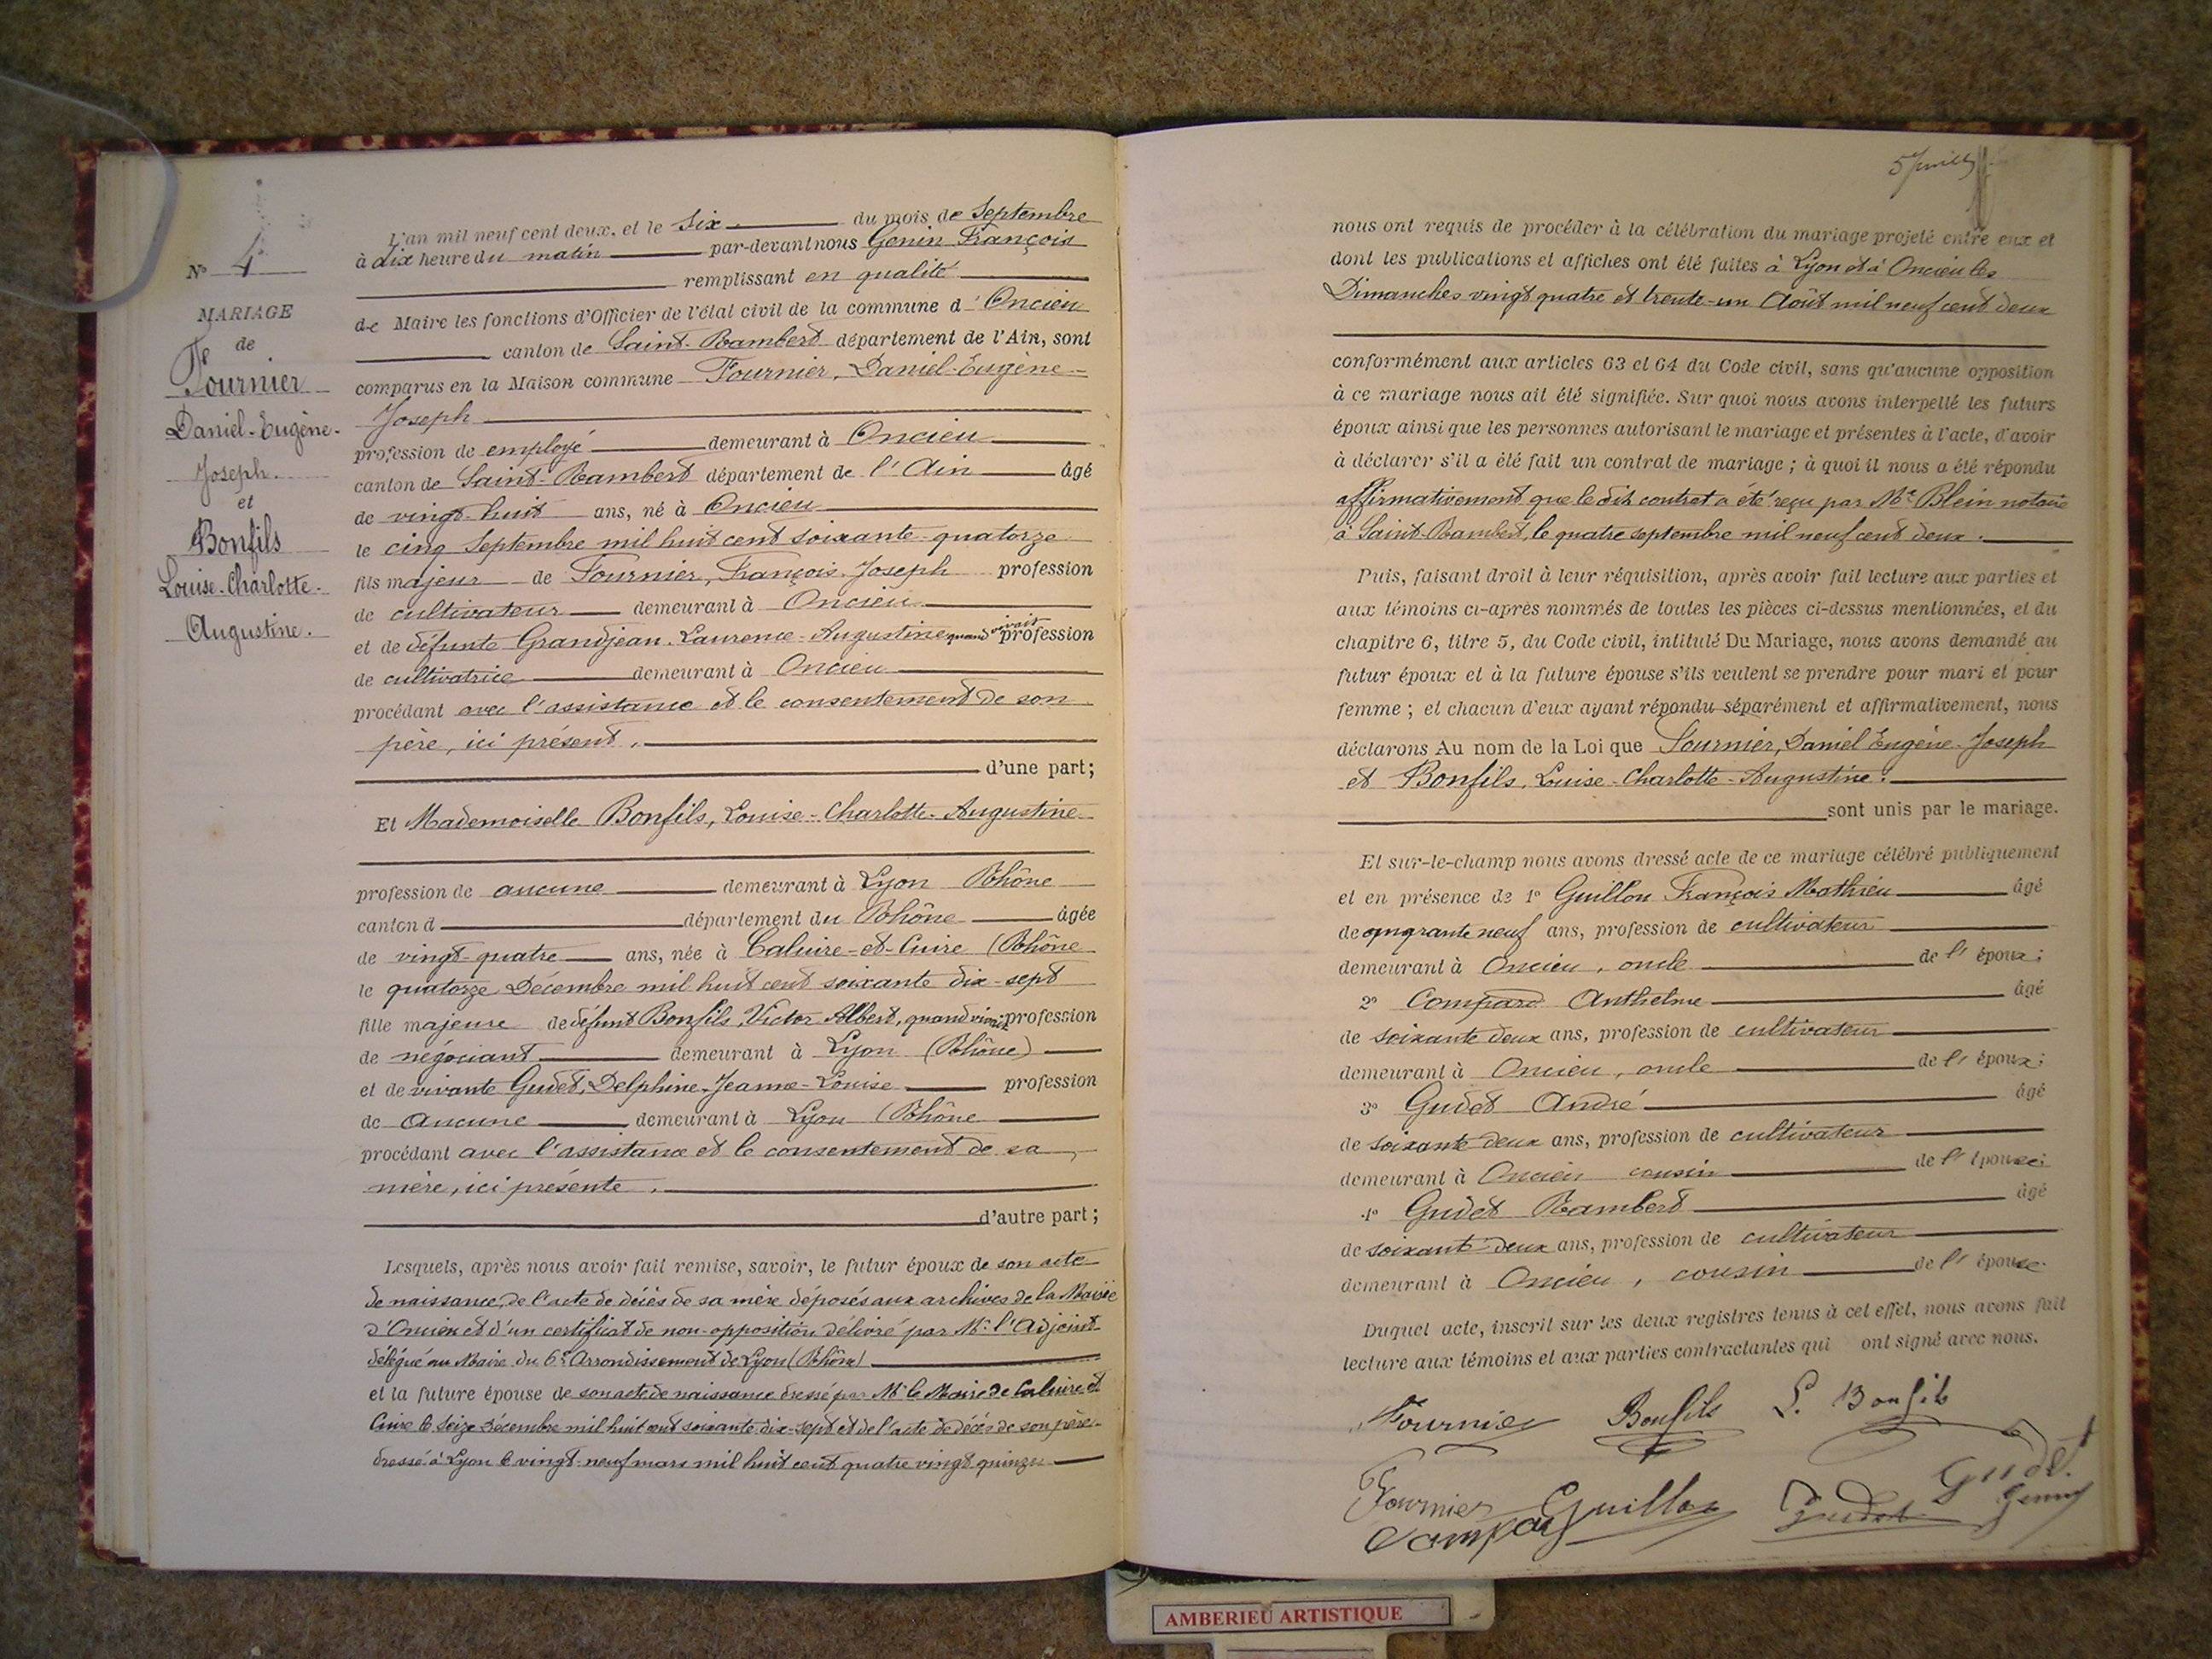 N° 4
MARIAGE
de
Fournier
Daniel-Eugène-
Joseph.
et
Bonfils
Louise-Charlotte-
Augustine.
L'an mil neuf cent deux, et le six du mois de Septembre
à dix heure du matin par-devant nous Genin François
remplissant en qualité
de Maire les fonctions d'Officier de l'état civil de la commune d'Oncieu
canton de Saint-Rambert département de l'Ain, sont
comparus en la Maison commune Fournier, Daniel-Eugène-
Joseph
profession de employé demeurant à Oncieu
canton de Saint-Rambert département de l'Ain âgé
de vingt-huit ans, né à Oncieu
le cinq Septembre mil huit cent soixante-quatorze
fils majeur de Fournier, François-Joseph profession
de cultivateur demeurant à Oncieu
et de défunte Grandjean, Laurence-Augustine quand vivait profession
de cultivatrice demeurant à Oncieu
procédant avec l'assistance et le consentement de son
père, ici présent.
d'une part;
Et Mademoiselle Bonfils, Louise-Charlotte-Augustine
profession de aucune demeurant à Lyon Rhône
canton d département du Rhône âgée
de vingt-quatre ans, née à Caluire-et-Cuire (Rhône
le quatorze Décembre mil huit cent soixante dix-sept
fille majeure de défunt Bonfils, Victor Albert, quand vivait profession
de négociant demeurant à Lyon (Rhône)
et de vivante Gudet, Delphine-Jeanne-Louise profession
de Aucune demeurant à Lyon (Rhône
procédant avec l'assistance et le consentement de sa
mère, ici présente.
d'autre part;
Lesquels, après nous avoir fait remise, savoir, le futur époux de son acte
de naissance, de l'acte de décès de sa mère déposés aux archives de la Mairie
d'Oncieu et d'un certificat de non-opposition délivré par Mr l'Adjoint
délégué au Maire du 6e Arrondissement de Lyon (Rhône)
et la future épouse de son acte de naissance dressé par Mr le Maire de Caluire et
Cuire le seize Décembre mil huit cent soixante dix-sept et de l'acte de décès de son père
dressé à Lyon le vingt-neuf mars mil huit cent quatre vingt quinze
nous ont requis de procéder à la célébration du mariage projeté entre eux et
dont les publications et affiches ont été faites à Lyon et à Oncieu les
Dimanches vingt quatre et trente-un Août mil neuf cent deux
conformément aux articles 63 et 64 du Code civil, sans qu'aucune opposition
à ce mariage nous ait été signifiée. Sur quoi nous avons interpellé les futurs
époux ainsi que les personnes autorisant le mariage et présentes à l'acte, d'avoir
à déclarer s'il a été fait un contrat de mariage ; à quoi il nous a été répondu
affirmativement que le dit contrat a été reçu par Me Blein notaire
à Saint-Rambert, le quatre septembre mil neuf cent deux.
Puis, faisant droit à leur réquisition, après avoir fait lecture aux parties et
aux témoins ci-après nommés de toutes les pièces ci-dessus mentionnées, et du
chapitre 6, titre 5, du Code civil, intitulé Du Mariage, nous avons demandé au
futur époux et à la future épouse s'ils veulent se prendre pour mari et pour
femme ; et chacun d'eux ayant répondu séparément et affirmativement, nous
déclarons Au nom de la Loi que Fournier, Daniel Eugène-Joseph
et Bonfils, Louise-Charlotte-Augustine.
sont unis par le mariage.
Et sur-le-champ nous avons dressé acte de ce mariage célébré publiquement
et en présence de 1° Guillon François Mathieu âgé
de neuf ans, profession de cultivateur
demeurant à Oncieu, oncle de l'époux;
2° Compard Anthelme âgé
de soixante deux ans, profession de cultivateur
demeurant à Oncieu, oncle de l'époux;
3° Gudet André âgé
de soixante deux ans, profession de cultivateur
demeurant à Oncieu cousin de l'épouse;
4° Gudet Rambert âgé
de soixante-deux ans, profession de cultivateur
demeurant à Oncieu, cousin de l'épouse
Duquel acte, inscrit sur les deux registres tenus à cet effet, nous avons fait
lecture aux témoins et aux parties contractantes qui ont signé avec nous.
Fournier Bonfils L. Bonfils
Fournier Guillon Gudet Gudet
Compard Genin
AMBERIEU ARTISTIQUE